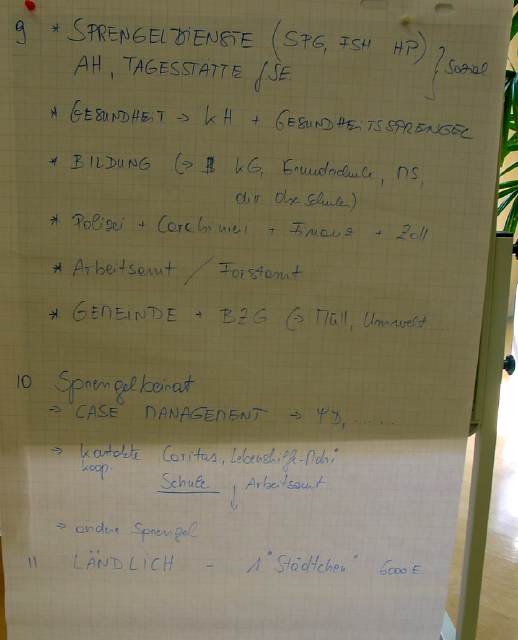 9 * SPRENGELDIENSTE (SPG, FSH HP) } Sozial
AH, TAGESSTÄTTE f SE
* GESUNDHEIT → KH + GESUNDHEITSSPRENGEL
* BILDUNG (→ KG, Grundschule, MS,
Schule)
* Polizei + Carabinieri + Finanz + Zoll
* Arbeitsamt / Forstamt
* GEMEINDE + BZG (→ Müll, Umwelt
10 Sprengelbeirat
→ CASE MANAGEMENT → ΨD, ......
→ Kontakte Caritas, Lebenshilfe -
koop. Schule ↓, Arbeitsamt
→ andere Sprengel
11 LÄNDLICH - 1 "Städtchen" 6000 E